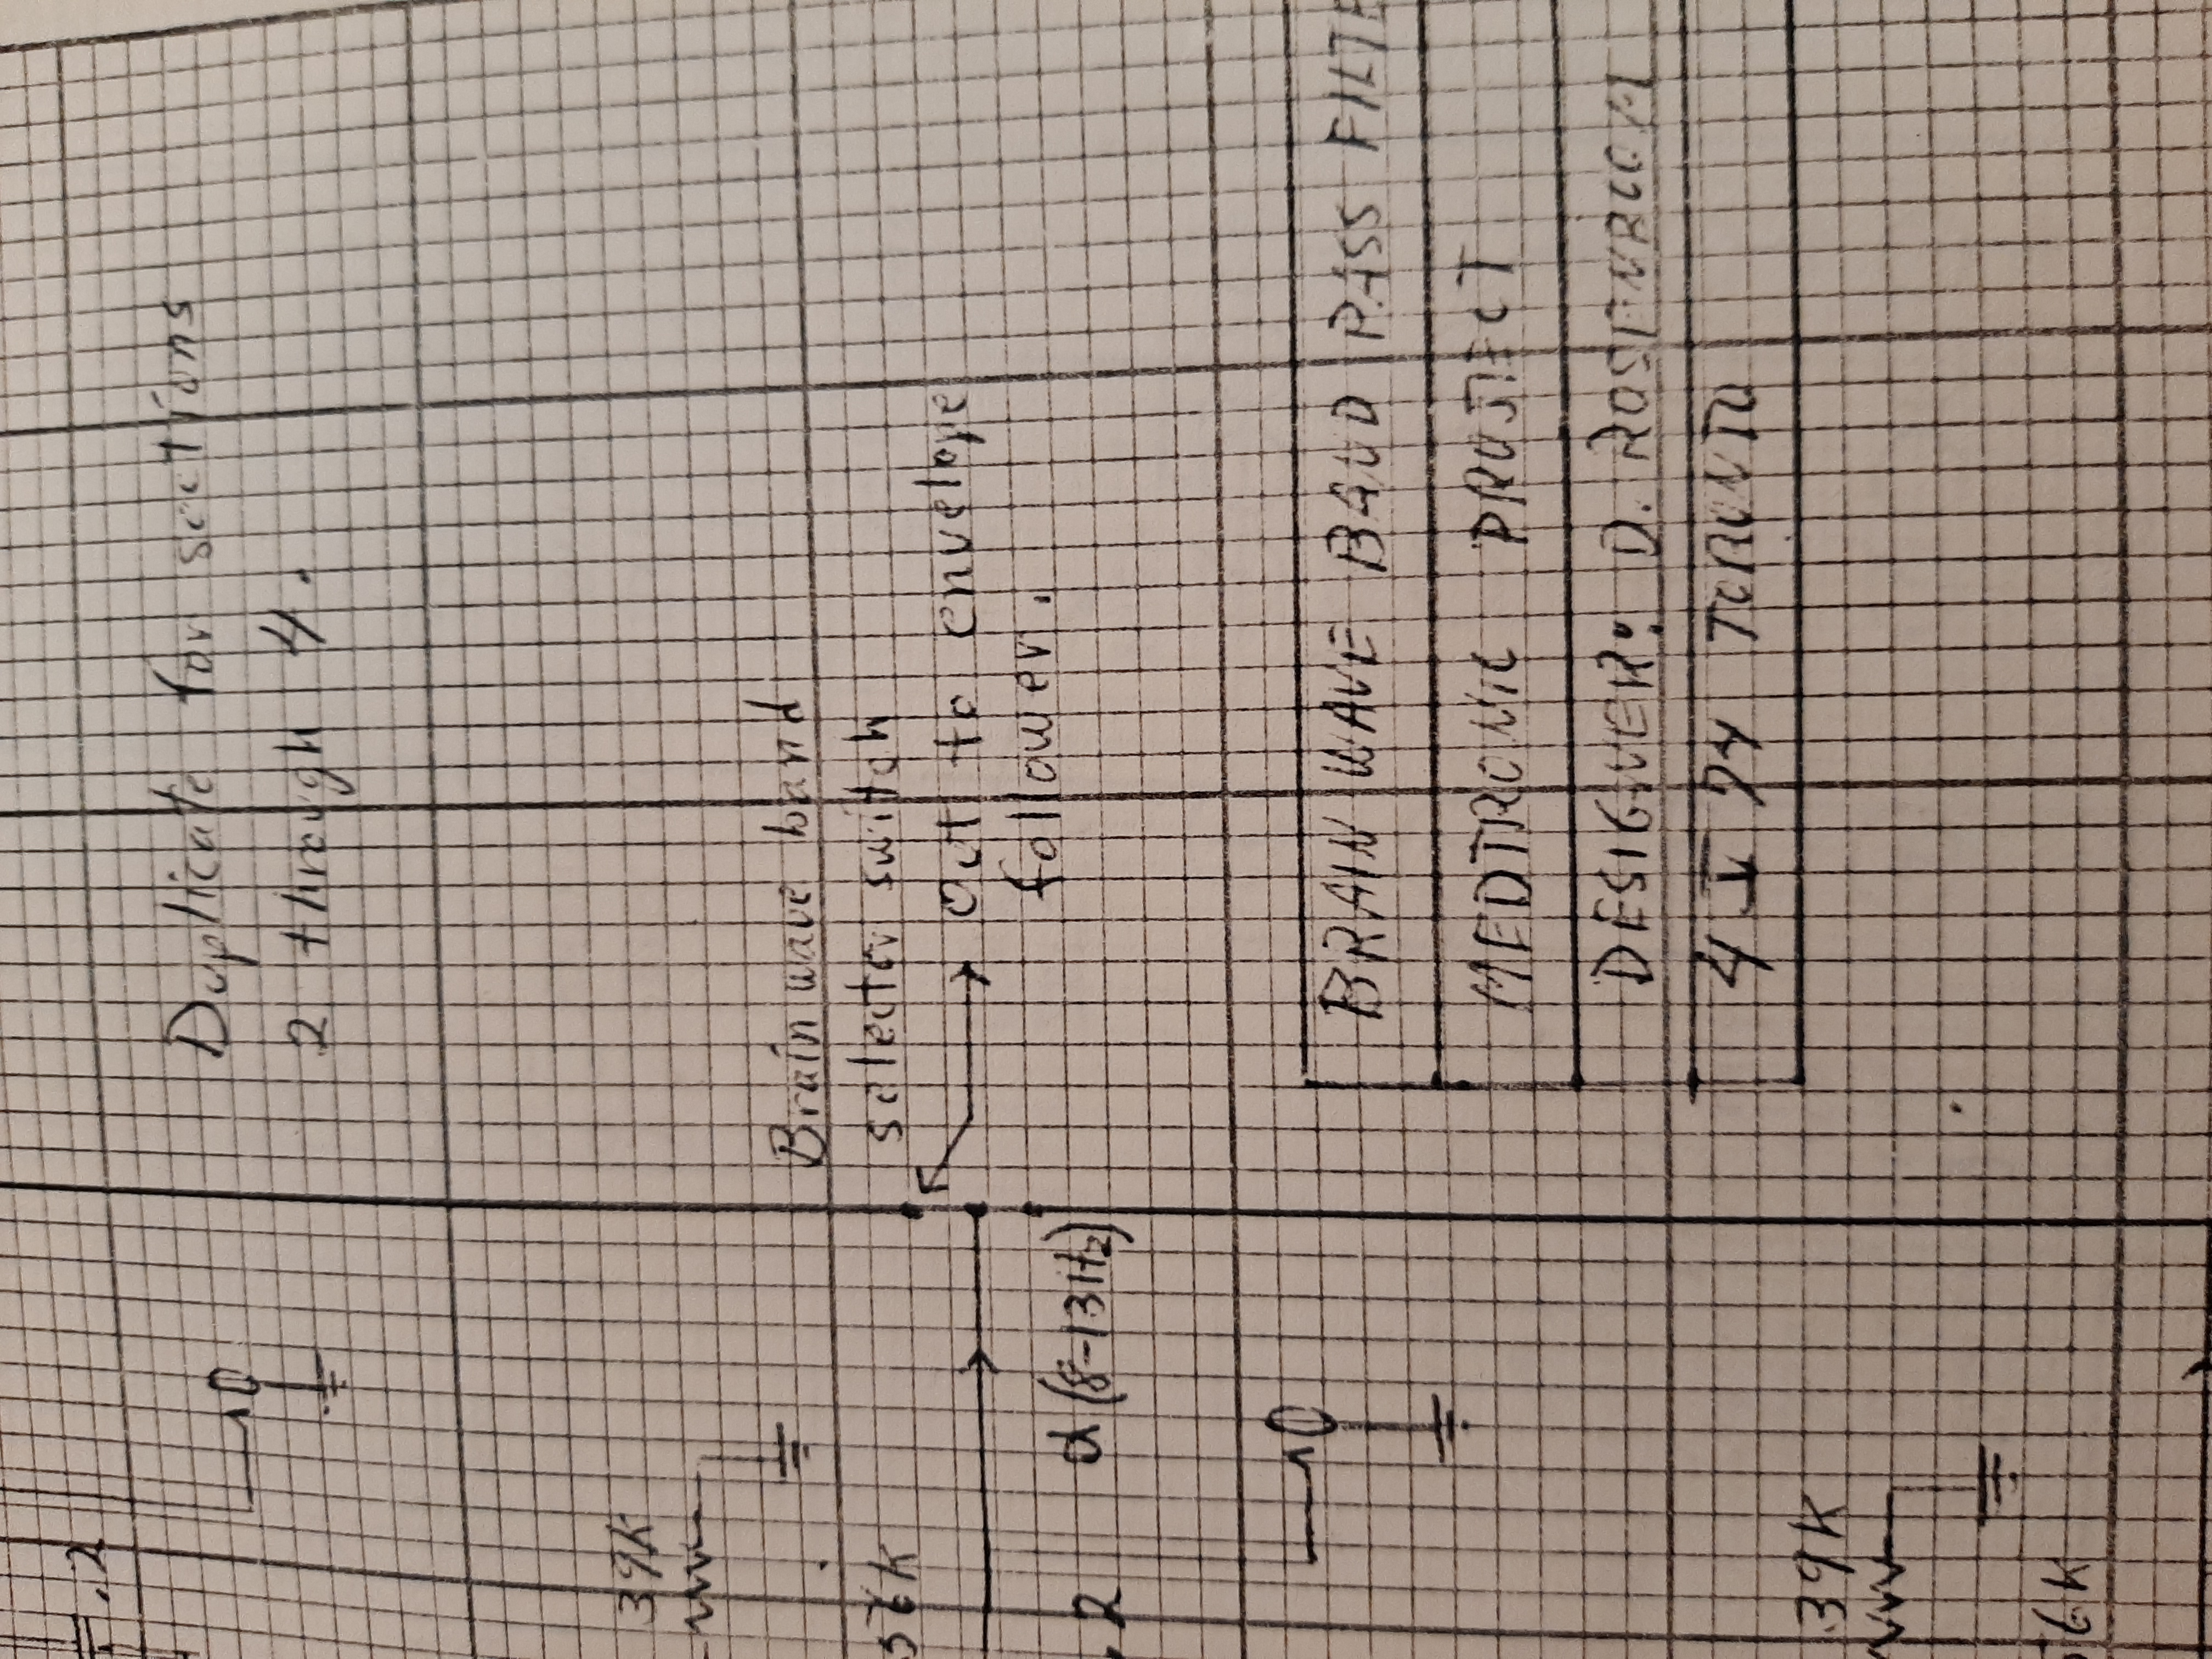 .2
Duplicate for sections
2 through 4.
39K
Brain wave band
selector switch
56K
Out to envelope
follower.
.2
α (8-13Hz)
BRAIN WAVE BAND PASS FILTE
MEDTRONIC PROJECT
DESIGNER: D. ROSENBOOM
4 V 74 TORONTO
39K
56K